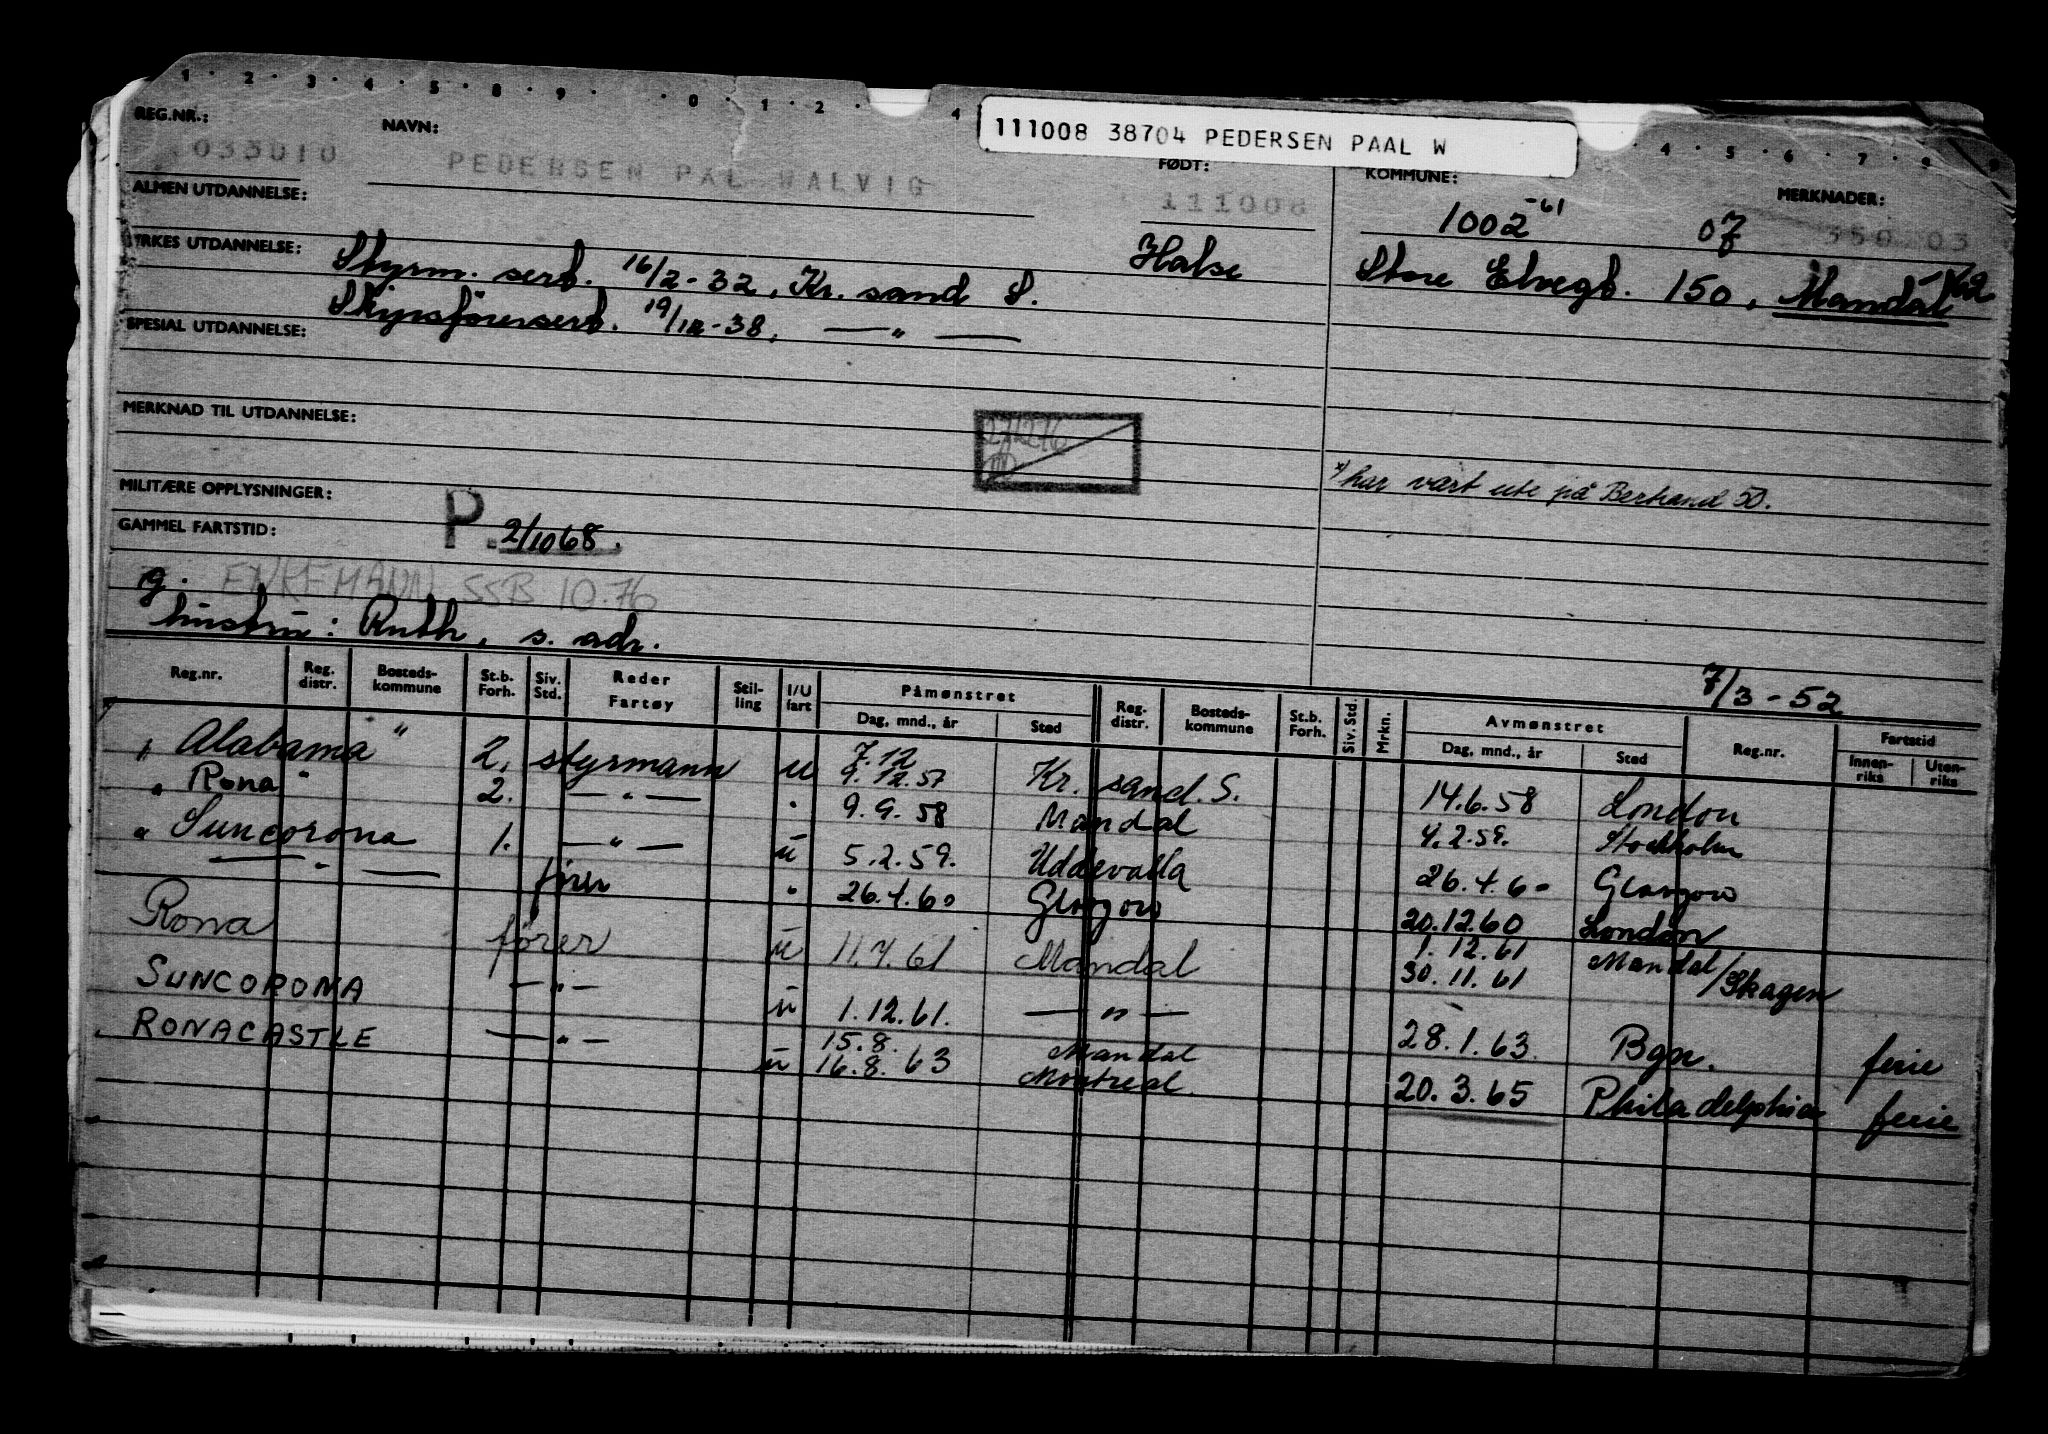 1 · 2 · 3 · 4 · 5 · 8 · 9 · · 0 · 1 · 2 · 4
4 · 5 · 6 · 7 · 8 9
111008 38704 PEDERSEN PAAL W
REG.NR.: NAVN: FØDT: KOMMUNE: MERKNADER:
033010 PEDERSEN PAL WALVIG 111008 1002 -61 07 350 03
ALMEN UTDANNELSE:
YRKES UTDANNELSE: Styrm. serb. 16/2-32, Kr. sand S. Halse Store Elvegt. 150, Mandal -62
Skipsförerserb. 19/12-38, — " —
SPESIAL UTDANNELSE:
MERKNAD TIL UTDANNELSE:
27/276
x) har vært ute på Bertrand 50.
MILITÆRE OPPLYSNINGER:
GAMMEL FARTSTID: P. 2/10 68.
g. ENKEMANN SSB 10.76
hustru: Ruth, s. adr.
7/3-52
Reg.nr. Reg. distr. Bosteds-kommune St.b. Forh. Siv. Std. Reder Fartøy Stil-ling I/U fart Påmønstret Dag, mnd., år Sted Reg. distr. Bosteds-kommune St.b. Forh. Siv. Std. Mrkn. Avmønstret Dag, mnd., år Sted Reg.nr. Fartstid Innen-riks Uten-riks
" Alabama " 2. styrmann u 7.12 9.12.57 Kr. sand. S. 14.6.58 London
" Rona " 2. — " — " 9.9.58 Mandal 4.2.59. Stockholm
" Suncorona 1. — " — u 5.2.59. Uddevalla 26.4.60 Glasgow
— " — förer " 26.4.60 Glasgow 20.12.60 London
Rona förer u 11.4.61 Mandal 1.12.61 30.11.61 Mandal/Skagen
SUNCORONA — " — u 1.12.61. — " — 28.1.63. Bgn. ferie
RONACASTLE — " — u 15.8. 16.8.63 Mandal Montreal 20.3.65 Philadelphia ferie